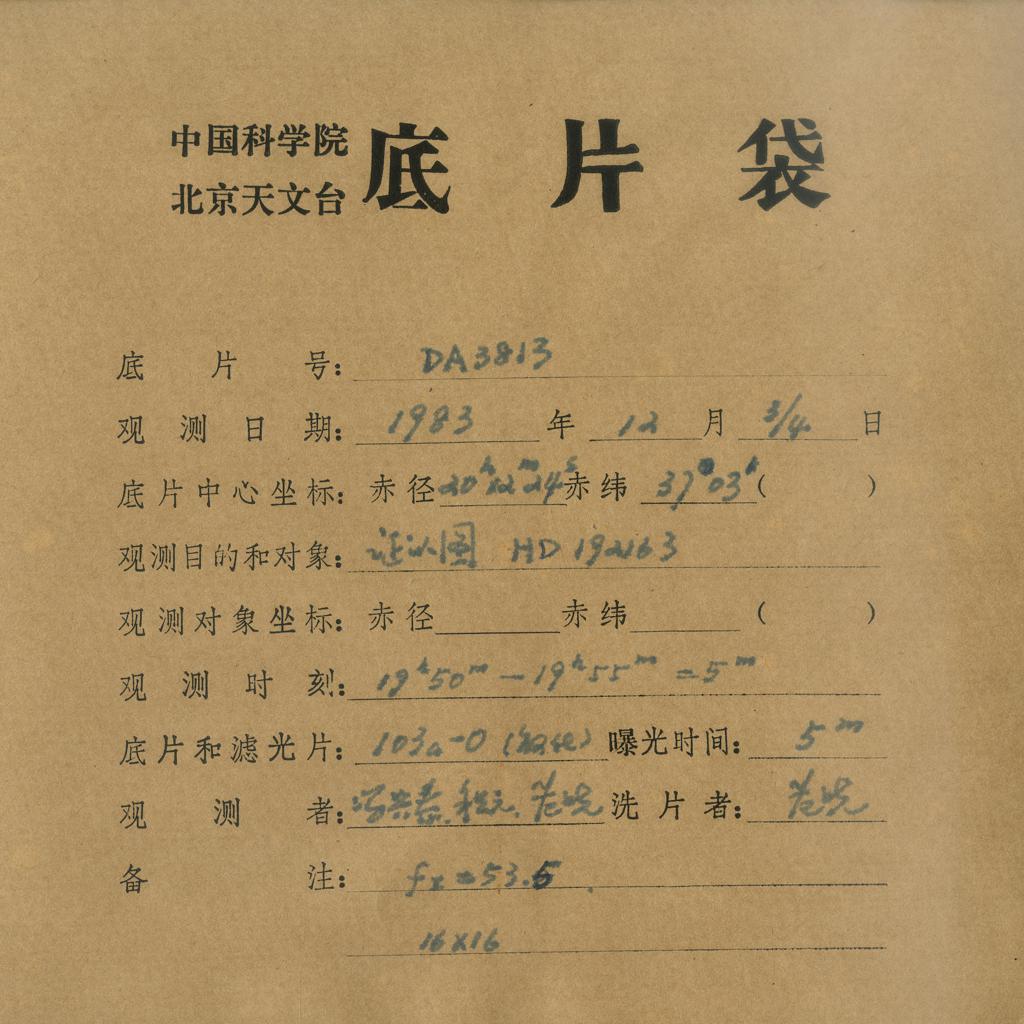 中国科学院
北京天文台
底片袋
底片号: DA3813
观测日期: 1983 年 12 月 3/4 日
底片中心坐标: 赤径 20h12m24s 赤纬 37°03′ ( )
观测目的和对象: 证认图 HD 192163
观测对象坐标: 赤径 赤纬 ( )
观测时刻: 19h50m — 19h55m = 5m
底片和滤光片: 103a-O 曝光时间: 5m
观测者: 洗片者:
备注: fx = 53.5
16×16